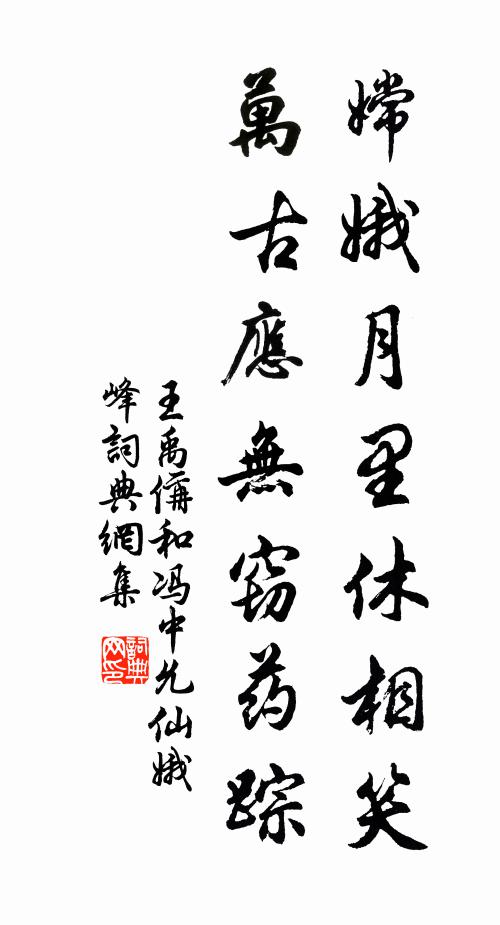 嫦娥月里休相笑
萬古應無窃药踪
王禹偁和冯中允仙娥
峰詞典網集
詞典
网印